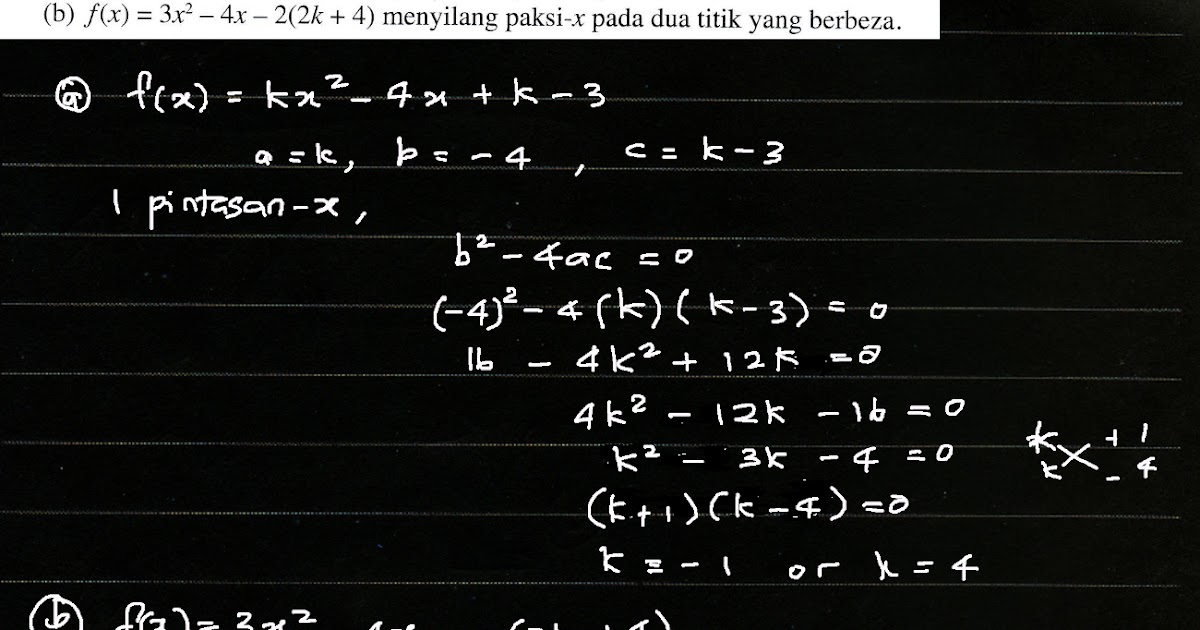 (b) f(x) = 3x² – 4x – 2(2k + 4) menyilang paksi-x pada dua titik yang berbeza.
(a) f(x) = kx² - 4x + k - 3
a = k, b = -4, c = k - 3
1 pintasan-x,
b² - 4ac = 0
(-4)² - 4(k)(k-3) = 0
16 - 4k² + 12k = 0
4k² - 12k - 16 = 0
k² - 3k - 4 = 0
k +1
k - 4
(k+1)(k-4) = 0
k = -1 or k = 4
(b) f(x) = 3x²